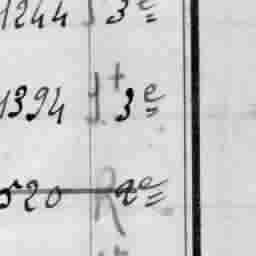 1244 3e
1394 + 3e
520 R 2e